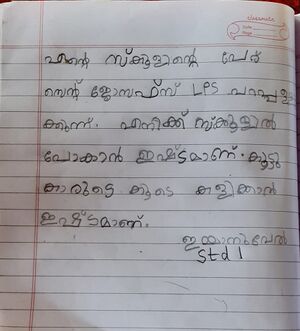 classmate
Date
Page
എന്റെ സ്ക്കൂളിന്റെ പേര്
സെന്റ് ജോസഫ്സ് LPS
ക്കുന്ന്. എനിക്ക് സ്ക്കൂളിൽ
പോകാൻ ഇഷ്ടമാണ്. കൂട്ടു
കാരുടെ കൂടെ കളിക്കാൻ
ഇഷ്ടമാണ്.
ഇമ്മാനുവേൽ
Std I